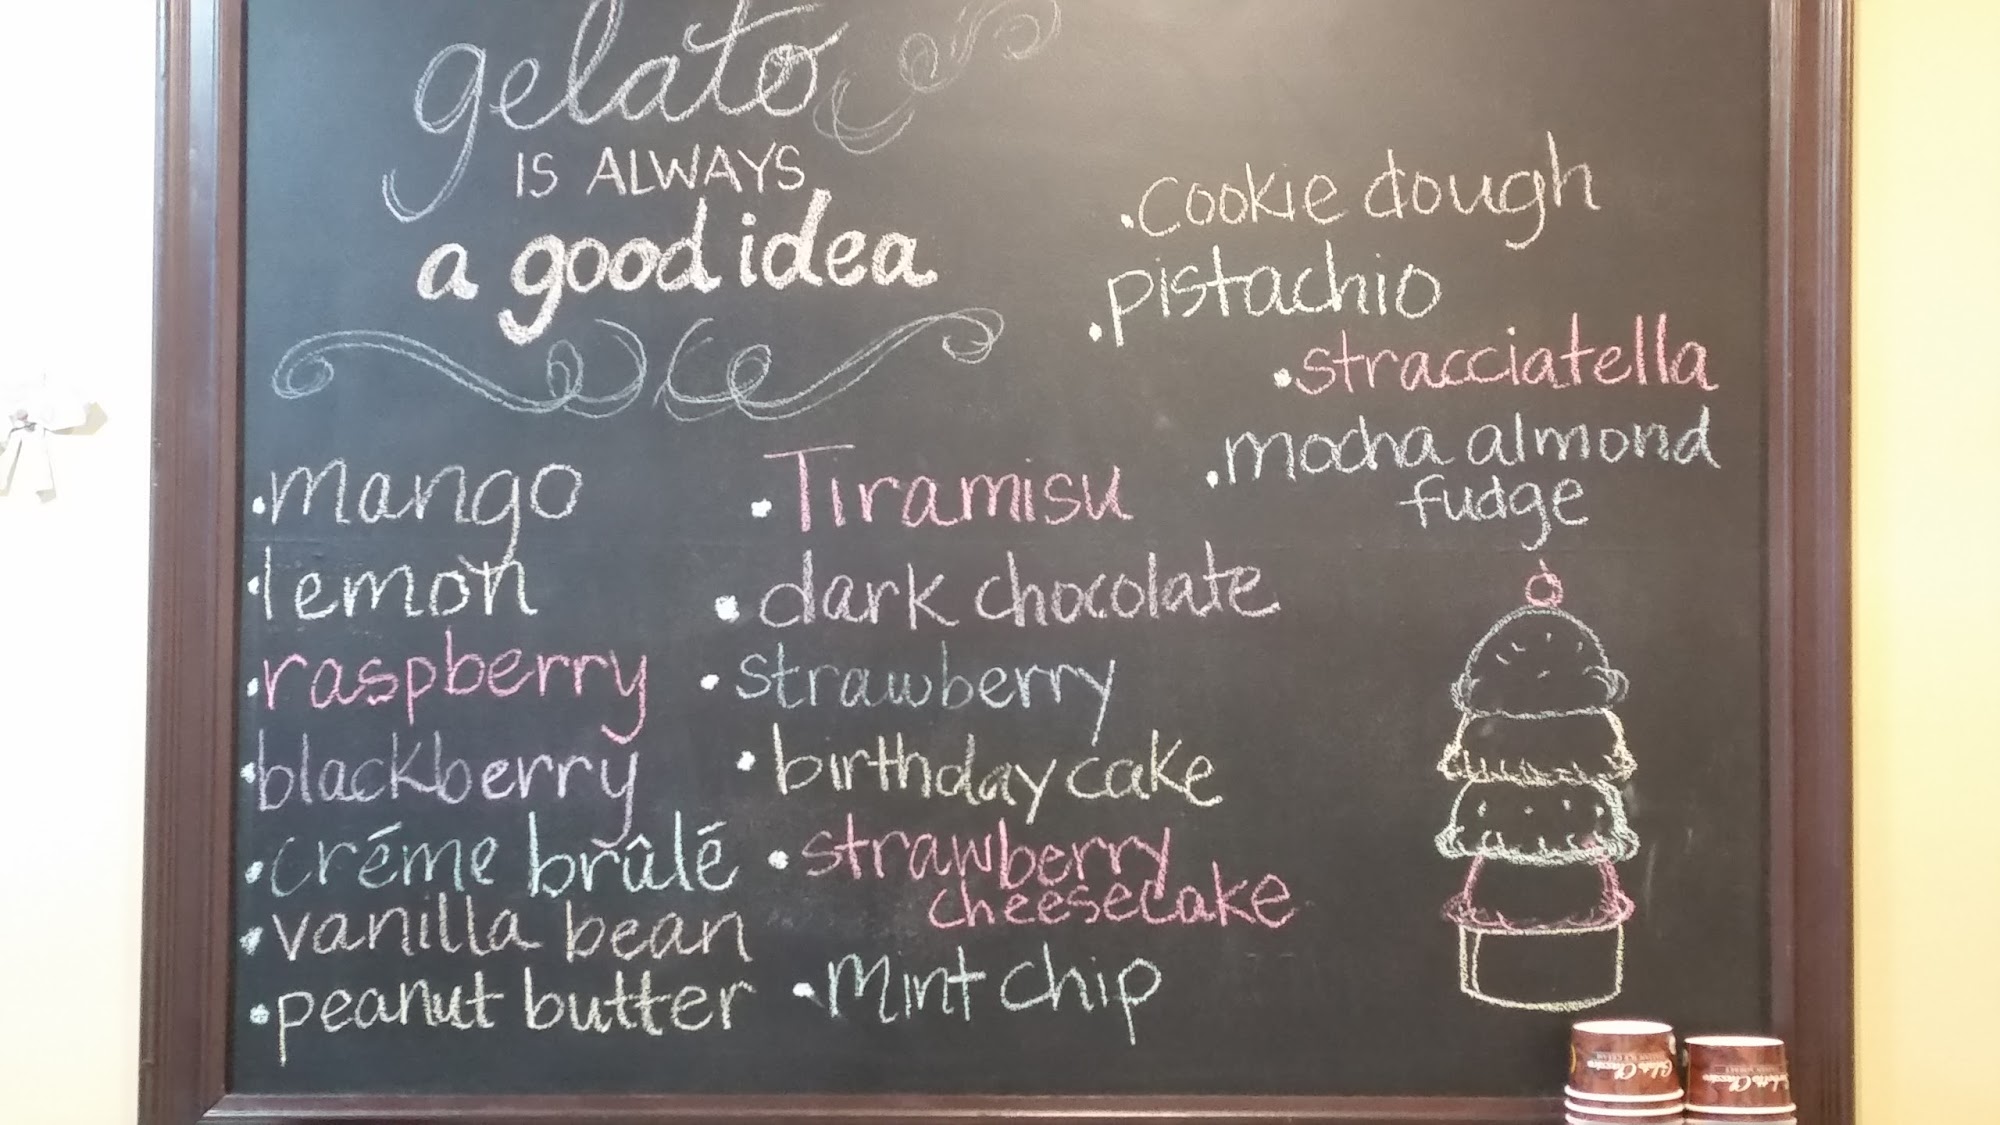 gelato
IS ALWAYS
a good idea
• mango
• lemon
• raspberry
• blackberry
• créme brûlé
• vanilla bean
• peanut butter
• Tiramisu
• dark chocolate
• strawberry
• birthday cake
• strawberry
cheesecake
• Mint chip
• cookie dough
• pistachio
• stracciatella
• mocha almond
fudge
Gelato Classico
ITALIAN ICE CREAM
Gelato Classico